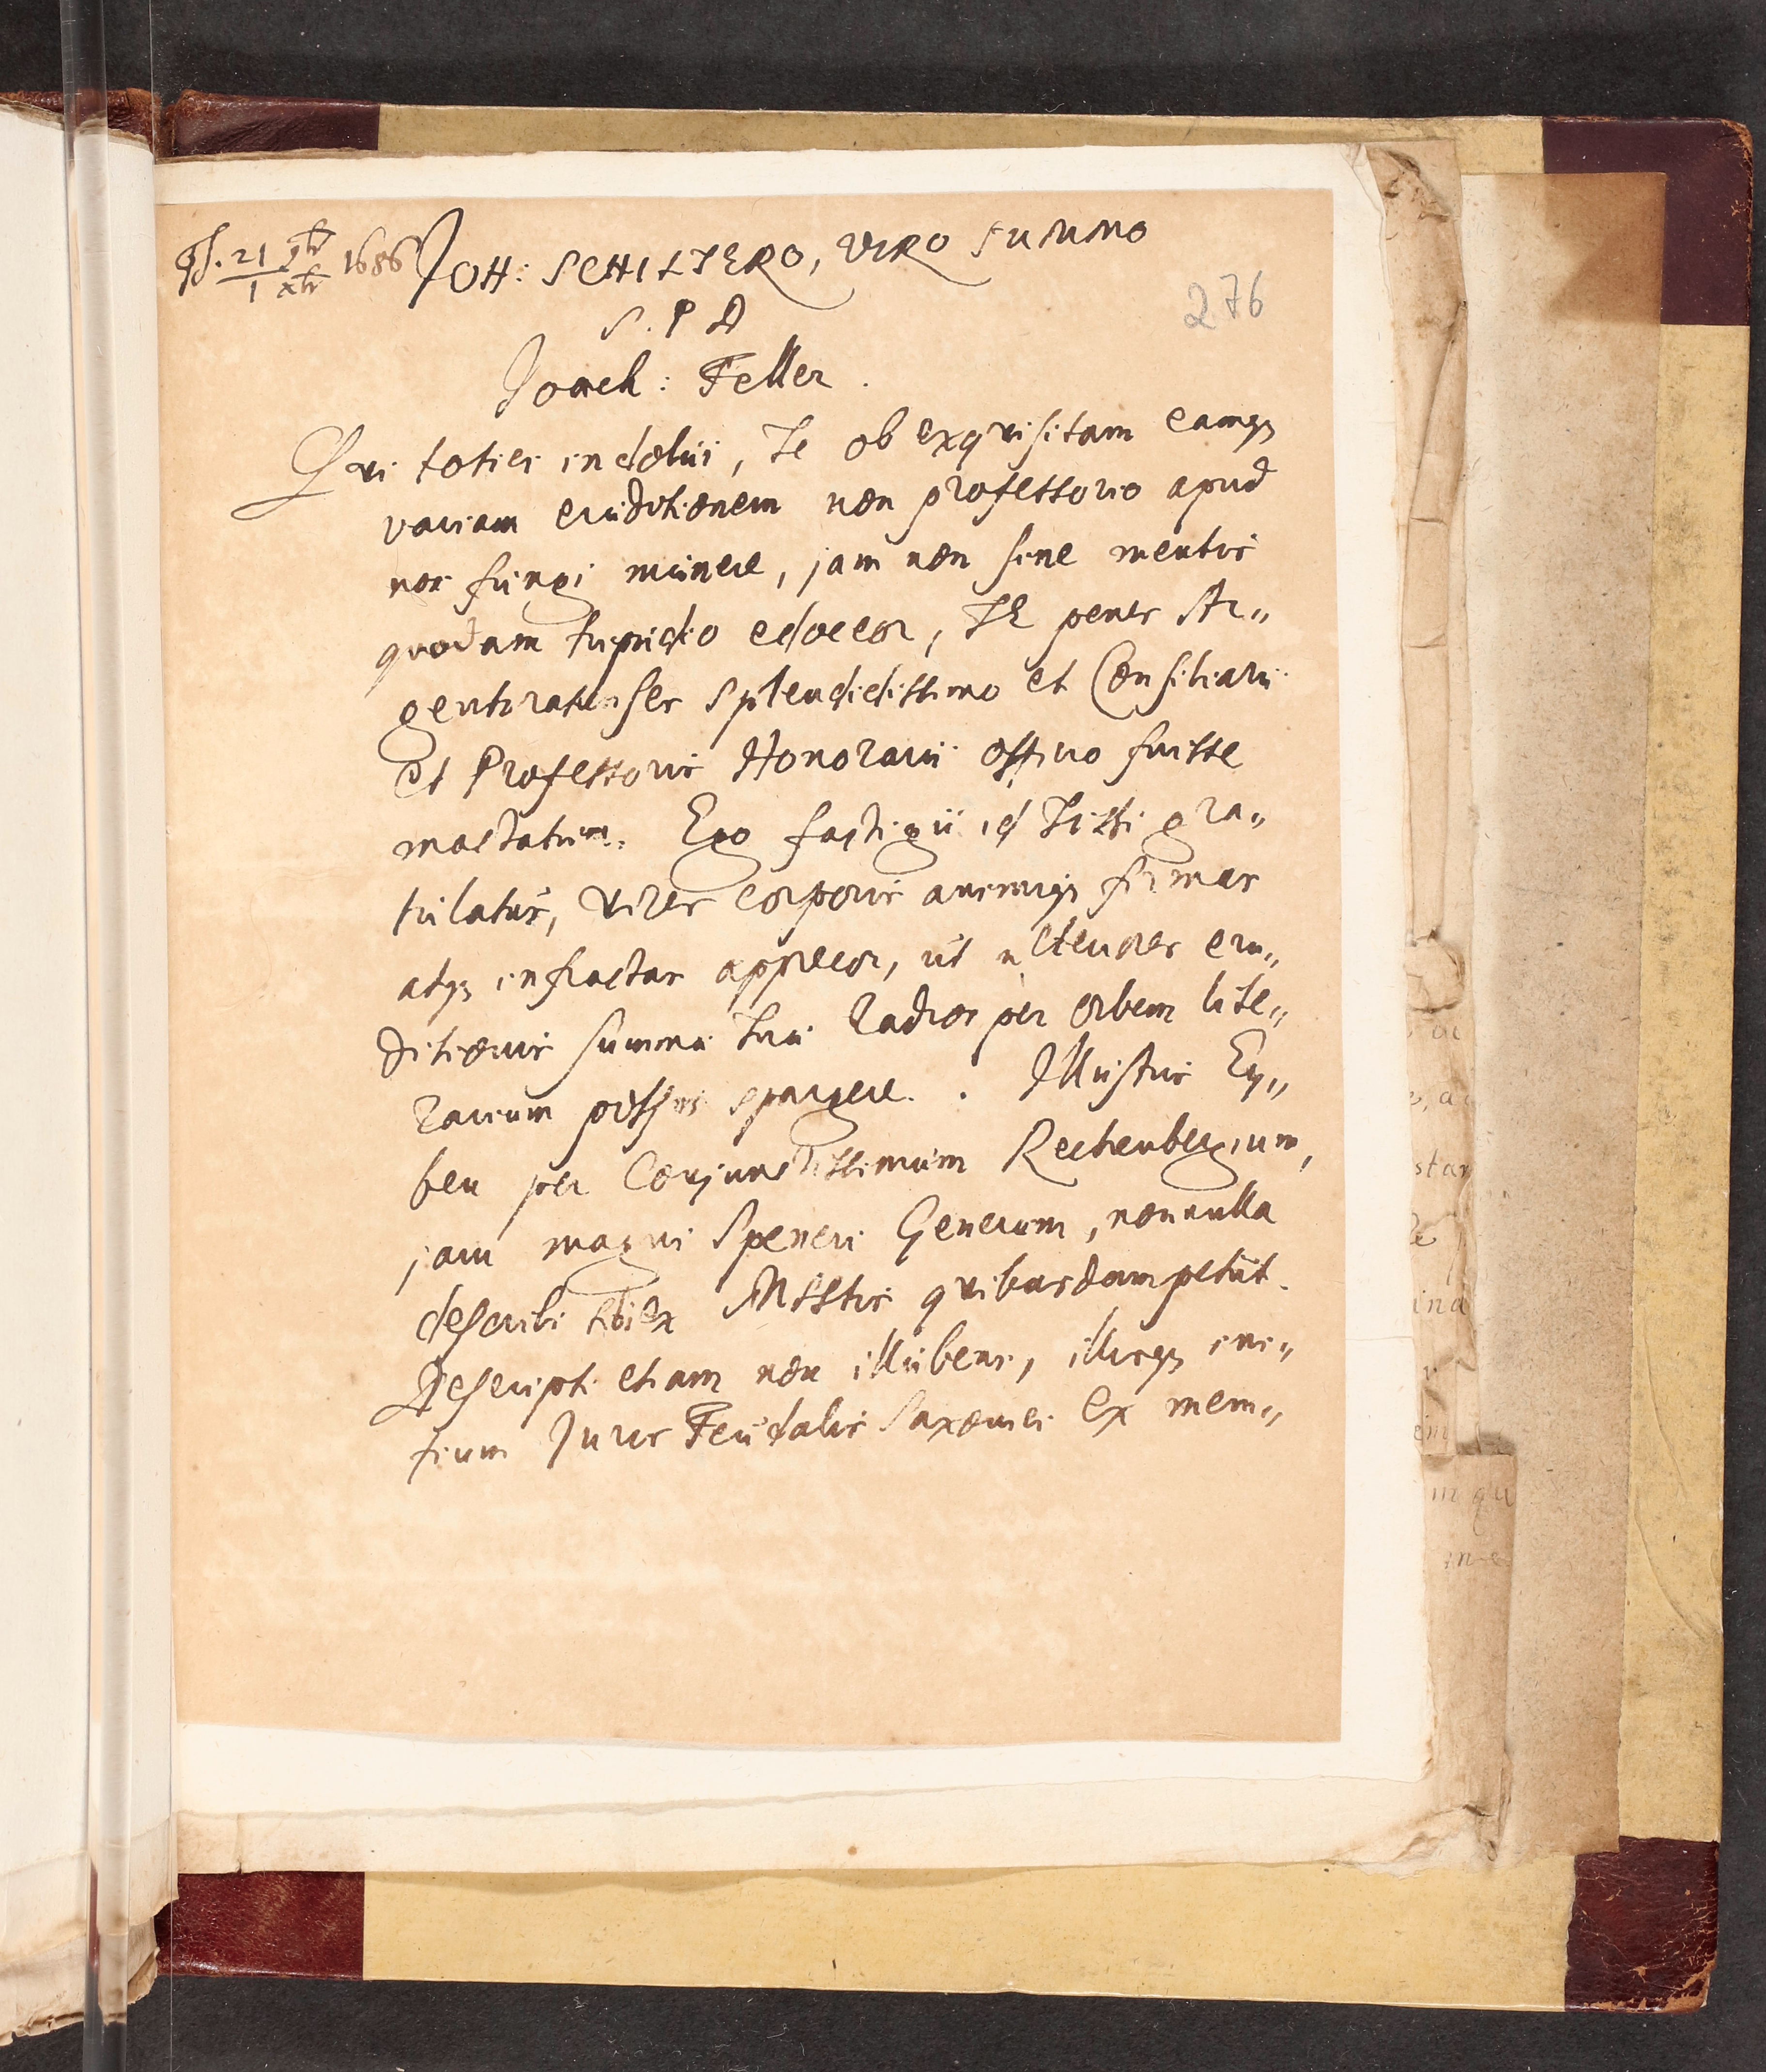 Ps. 21 9br / 1 xbr 1686 JOH: SCHILTERO, VIRO SUMMO
276
S. P D
Joach: Feller.
Qvi toties indolui, Te ob exqvisitam eamqs
variam eruditionem non professorio apud
nos fungi munere, jam non sine mentis
quodam tripudio edoceor, TE penes Ar„
gentoratenses splendidissimo et Consiliarii
et Professoris Honorarii officio fuisse
mactatum. Ego fastigii id Tisti gra„
tulatus, vires corporis animiqs firmas
atqs infractas apprecor, ut
ditionis summae Tuae radios per orbem lite„
rarium possis spargere. Illustris Ey„
ben per Conjunctissimum Rechenbergium,
jam magni Speneri Generum, nonnulla
describi sibi ex MSStis qvibusdam petiit.
Descripti etiam non illubens, illisqs ini„
tium Juris Feudalis Saxonici ex mem„